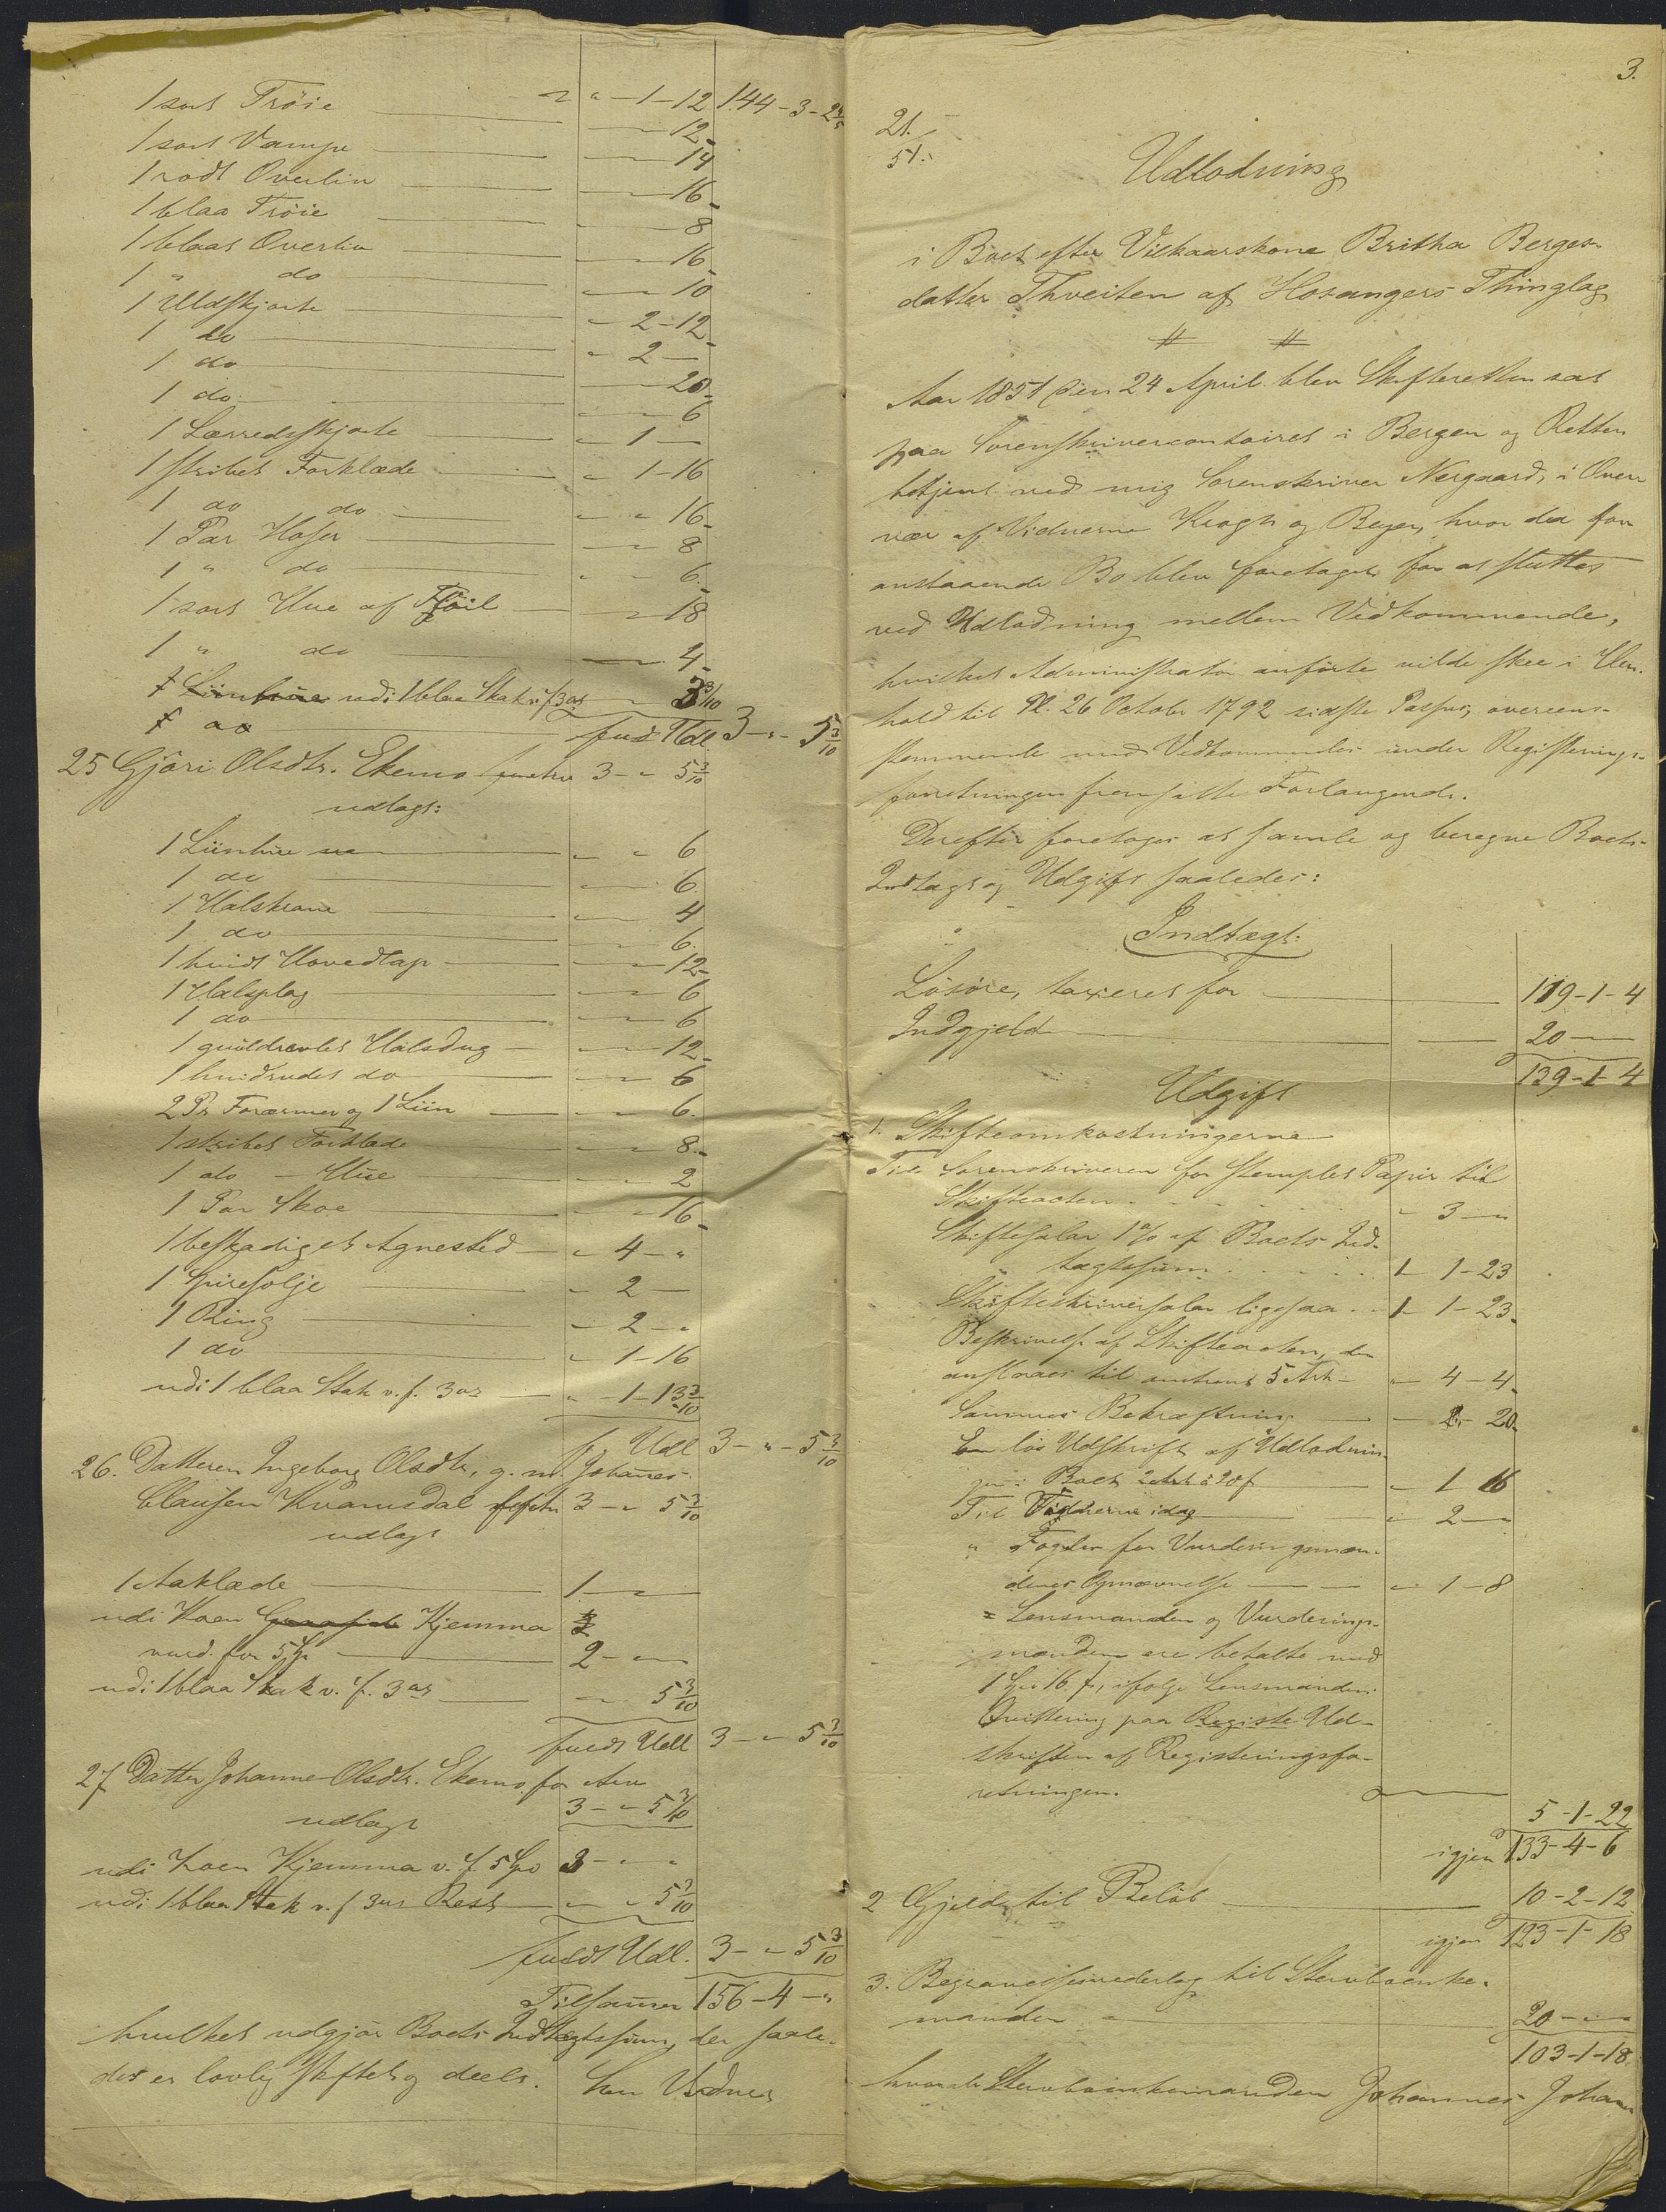 1 sort Trøie " - 1 - 12 144 - 3 - 2 4/5
1 sort Vampe 12
1 rødt Overliv 14
1 blaa Trøie 16
1 blaat Overliv 8
1 " do 16
1 Uldskjorte 10
1 do 2 - 12
1 do 2 -
1 do 20
1 Lærredsskjorte 6
1 stribet Forklæde 1 -
1 do do 1 - 16
1 Par Hoser 16
1 " do 8
1 sort Hue af Fløil 6
1 " do 18
4
udi 1 blaa Stak v. f. 3 ort 3/10
fuldt Udl. 3 - " - 5 3/10
25 Gjøri Olsdtr. Ekemo 3 - " 5 3/10
udlagt:
1 Liinhue " " 6
1 do 6
1 Halskrave 4
1 do 6
1 hvidt Hovedtap 12
1 Halsplag 6
1 do 6
1 Halsdug 12
1 hvidrudet do 6
2 Pr Forærmer og 1 Liin 6
1 stribet Forklæde 8
1 do - Hue 2
1 Par Skoe 16
1 beskadiget Agnested " 4 - "
1 Spiresølje - 2 -
1 Ring - 2 - "
1 do " 1 - 16
udi 1 blaa Stak v. f. 3 ort " - 1 - 13 3/10
f. Udl 3 - " - 5 3/10
26. Datteren Ingeborg Olsdtr, g. m. Johannes
Clausen Kvamsdal 3 - " 5 3/10
udlagt
1 Aaklæde 1 - "
udi Koen Kjemma
vurd. for 5 Sp 2 - "
udi 1 blaa Stak v. f. 3 ort " 5 3/10
fuldt Udl 3 - " 5 3/10
27 Datter Johanne Olsdtr. Ekemo for Arv
3 - " 5 3/10
udlagt
udi Koen Kjemma v. f. 5 Spd 3 - " "
udi 1 blaa Stak v. f. 3 ort Rest " " 5 3/10
fuldt Udl. 3 - " 5 3/10
Tilsamen 156 - 4 - "
hvilket udgjør Boets Indtægtssum, der saale-
des er lovlig skiftet og deelt. Som Vidner
3.
21.
51.
Udlodning
i Boet efter Vilkaarskone Britha Berges-
datter Thveiten af Hosangers Thinglag
Aar 1851 den 24 April blev Skifteretten sat
paa Sorenskrivercontoiret i Bergen og Retten
betjent ved mig Sorenskriver Nergaard, i Over-
vær af Vidnerne Krogh og Beyer, hvor da for-
anstaaende Bo blev foretaget for at sluttes
ved Udlodning mellem Vedkommende,
hvilket Administrator anførte vilde skee i Hen-
hold til Pl. 26 October 1792 sidste Passus, overeens-
stemmende med Vedkommendes under Registerings-
forretningen fremsatte Forlangende.
Derefter foretoges at samle og beregne Boets
Indtægt og Udgift saaledes:
Indtægt:
Løsøre, taxeret for 119 - 1 - 4
Indgjeld 20 -
139 - 1 - 4
Udgift
1. Skifteomkostningerne
Til Sorenskriveren for stemplet Papir til
Skifteacten - 3 - "
Skiftesalar 1% af Boets Ind-
tægtssum 1 - 1 - 23
Skifteskriversalar ligesaa 1 - 1 - 23
Beskrivelse af Skifteacten, der
anslaaes til omtrent 5 Ark - 4 - 4
Sammes Bekræftning - 20
En løs Udskrift af Udlodnin-
gen i Boet 2 Ark à 20 f - 1 16
Til Vidnerne idag - 2 -
" Fogden for Vurderingsmæn-
denes Opnævnelse - 1 - 8
= Lensmanden og Vurderings-
mændene ere betalte med
1 Sp. 16 f, ifølge Lensmandens
Qvittering paa Registe Ud-
skriften af Registeringsfor-
retningen.
5 - 1 - 22
igjen 133 - 4 - 6
2 Gjeld, til Beløb 10 - 2 - 12
igjen 123 - 1 - 18
3. Begravelsesvederlag til Stervboenke-
manden 20 - " -
103 - 1 - 18
hvoraf Stervboenkemanden Johannes Johan